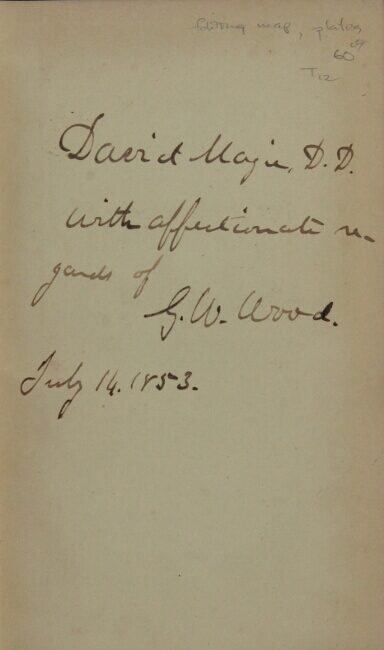 map, plates
60
T12
David Magie, D.D.
with affectionate re-
gards of
G. W. Wood.
July 14. 1853.